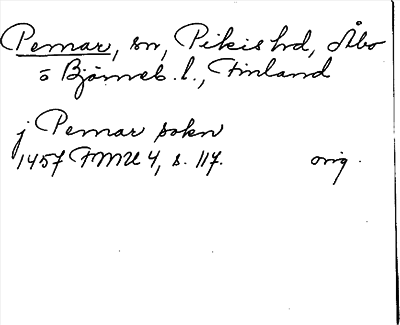 Pemar, sn, Pikis hd, Åbo
o Björneb. l., Finland
j Pemar sokn
1457 FMU 4, s. 117. orig.